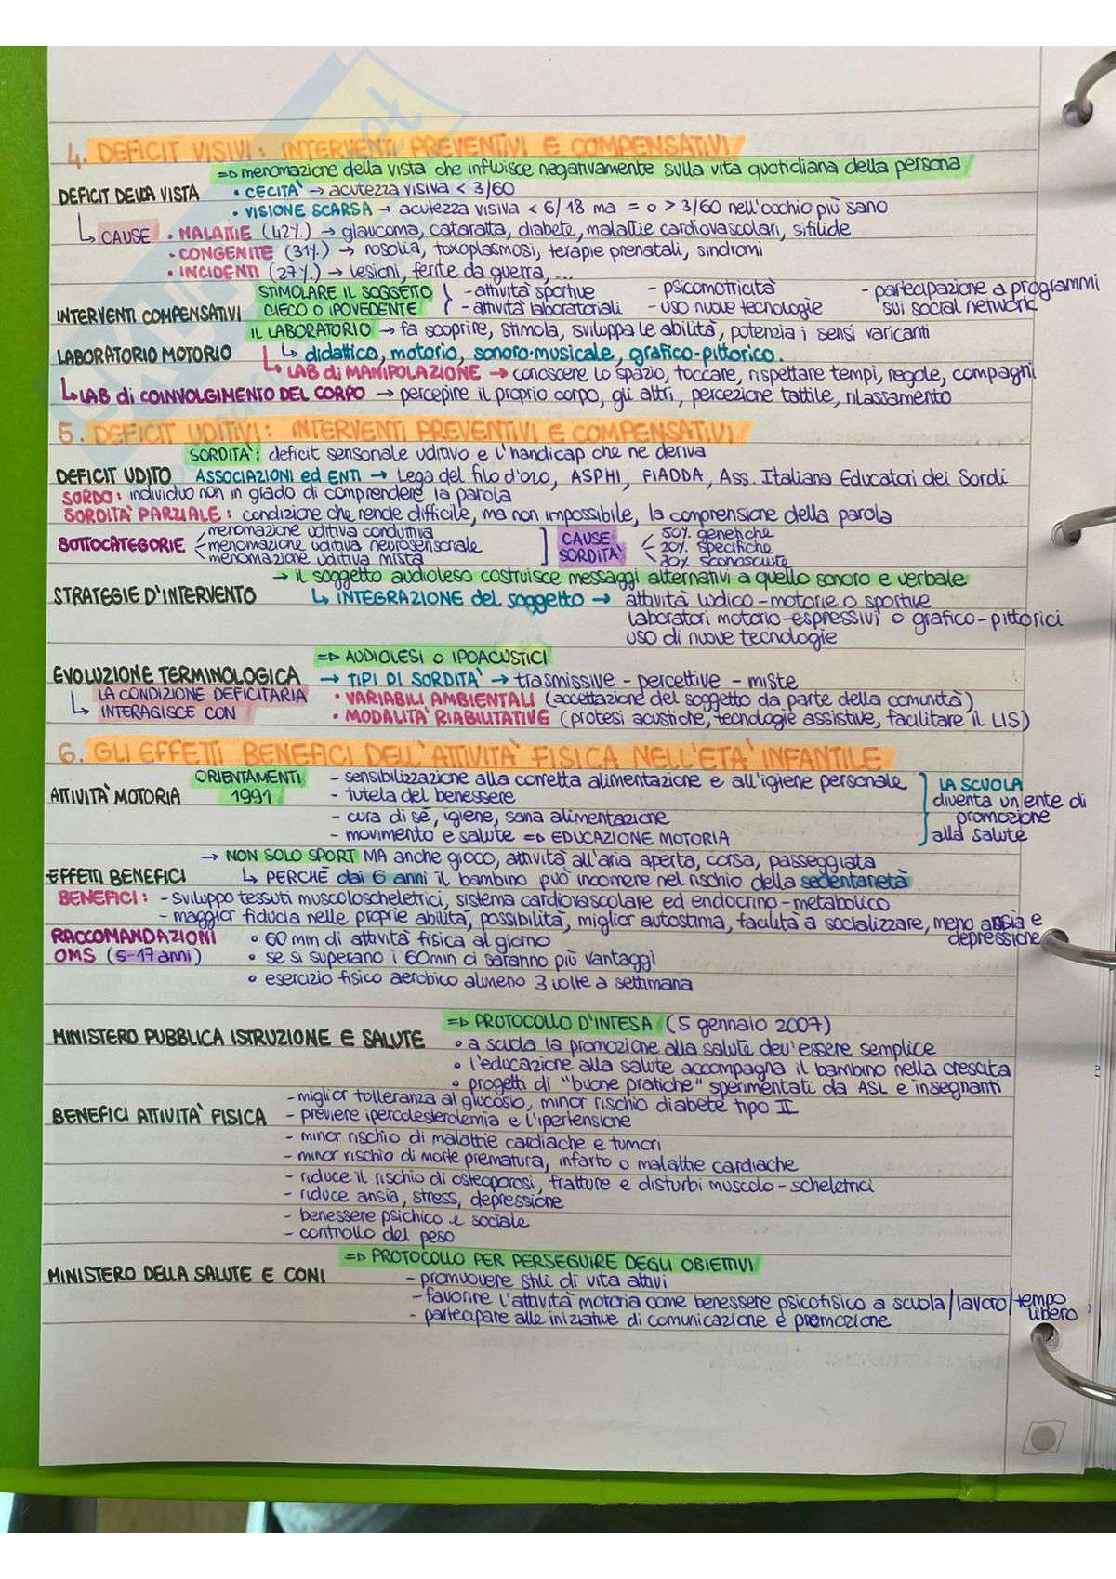 4. DEFICIT VISIVI: INTERVENTI PREVENTIVI E COMPENSATIVI
=> menomazione della vista che influisce negativamente sulla vita quotidiana della persona
DEFICIT DELLA VISTA • CECITA' → acutezza visiva < 3/60
• VISIONE SCARSA → acutezza visiva < 6/18 ma = o > 3/60 nell'occhio più sano
↳ CAUSE • MALATTIE (42%) → glaucoma, cataratta, diabete, malattie cardiovascolari, sifilide
• CONGENITE (31%) → rosolia, toxoplasmosi, terapie prenatali, sindromi
• INCIDENTI (27%) → lesioni, ferite da guerra, ...
STIMOLARE IL SOGGETTO - attività sportive - psicomotricità - partecipazione a programmi
INTERVENTI COMPENSATIVI CIECO O IPOVEDENTE - attività laboratoriali - uso nuove tecnologie sui social network
IL LABORATORIO → fa scoprire, stimola, sviluppa le abilità, potenzia i sensi varicanti
LABORATORIO MOTORIO ↳ didattico, motorio, sonoro-musicale, grafico-pittorico.
↳ LAB di MANIPOLAZIONE → conoscere lo spazio, toccare, rispettare tempi, regole, compagni
↳ LAB di COINVOLGIMENTO DEL CORPO → percepire il proprio corpo, gli altri, percezione tattile, rilassamento
5. DEFICIT UDITIVI: INTERVENTI PREVENTIVI E COMPENSATIVI
SORDITA': deficit sensoriale uditivo e l'handicap che ne deriva
DEFICIT UDITO ASSOCIAZIONI ed ENTI → Lega del filo d'oro, ASPHI, FIADDA, Ass. Italiana Educatori dei Sordi
SORDO: individuo non in grado di comprendere la parola
SORDITA' PARZIALE: condizione che rende difficile, ma non impossibile, la comprensione della parola
menomazione uditiva conduttiva 50% genetiche
SOTTOCATEGORIE menomazione uditiva neurosensoriale CAUSE SORDITA' 20% specifiche
menomazione uditiva mista 30% sconosciute
→ il soggetto audioleso costruisce messaggi alternativi a quello sonoro e verbale
STRATEGIE D'INTERVENTO ↳ INTEGRAZIONE del soggetto → attività ludico-motorie o sportive
laboratori motorio-espressivi o grafico-pittorici
uso di nuove tecnologie
=> AUDIOLESI O IPOACUSTICI
EVOLUZIONE TERMINOLOGICA → TIPI DI SORDITA' → trasmissive - percettive - miste
LA CONDIZIONE DEFICITARIA • VARIABILI AMBIENTALI (accettazione del soggetto da parte della comunità)
↳ INTERAGISCE CON • MODALITA' RIABILITATIVE (protesi acustiche, tecnologie assistive, facilitare il LIS)
6. GLI EFFETTI BENEFICI DELL'ATTIVITA' FISICA NELL'ETA' INFANTILE
ORIENTAMENTI - sensibilizzazione alla corretta alimentazione e all'igiene personale LA SCUOLA
ATTIVITA' MOTORIA 1991 - tutela del benessere diventa un ente di
- cura di sé, igiene, sana alimentazione promozione
- movimento e salute => EDUCAZIONE MOTORIA alla salute
→ NON SOLO SPORT MA anche gioco, attività all'aria aperta, corsa, passeggiata
EFFETTI BENEFICI ↳ PERCHÉ dai 6 anni il bambino può incorrere nel rischio della sedentarietà
BENEFICI: - sviluppo tessuti muscoloscheletrici, sistema cardiovascolare ed endocrino-metabolico
- maggior fiducia nelle proprie abilità, possibilità, miglior autostima, facilità a socializzare, meno ansia e
depressione
RACCOMANDAZIONI • 60 min di attività fisica al giorno
OMS (5-17 anni) • se si superano i 60min ci saranno più vantaggi
• esercizio fisico aerobico almeno 3 volte a settimana
=> PROTOCOLLO D'INTESA (5 gennaio 2007)
MINISTERO PUBBLICA ISTRUZIONE E SALUTE • a scuola la promozione alla salute dev'essere semplice
• l'educazione alla salute accompagna il bambino nella crescita
• progetti di "buone pratiche" sperimentati da ASL e insegnanti
- miglior tolleranza al glucosio, minor rischio diabete tipo II
BENEFICI ATTIVITA' FISICA - previene ipercolesterolemia e l'ipertensione
- minor rischio di malattie cardiache e tumori
- minor rischio di morte prematura, infarto o malattie cardiache
- riduce il rischio di osteoporosi, fratture e disturbi muscolo-scheletrici
- riduce ansia, stress, depressione
- benessere psichico e sociale
- controllo del peso
=> PROTOCOLLO PER PERSEGUIRE DEGLI OBIETTIVI
MINISTERO DELLA SALUTE E CONI - promuovere stili di vita attivi
- favorire l'attività motoria come benessere psicofisico a scuola/lavoro/tempo libero
- partecipare alle iniziative di comunicazione e promozione